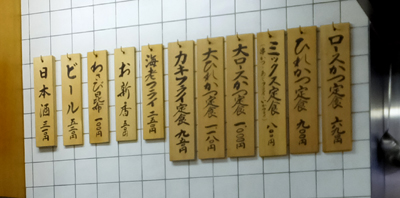 ロースかつ定食 六五〇円
ひれかつ定食 九〇〇円
ミックス定食 八〇〇円
大ロースかつ定食 一〇〇〇円
大ひれかつ定食 一一八〇円
カキフライ定食 九五〇円
海老フライ 二五〇円
お新香
わさび昆布 一〇〇円
ビール 五二〇円
日本酒